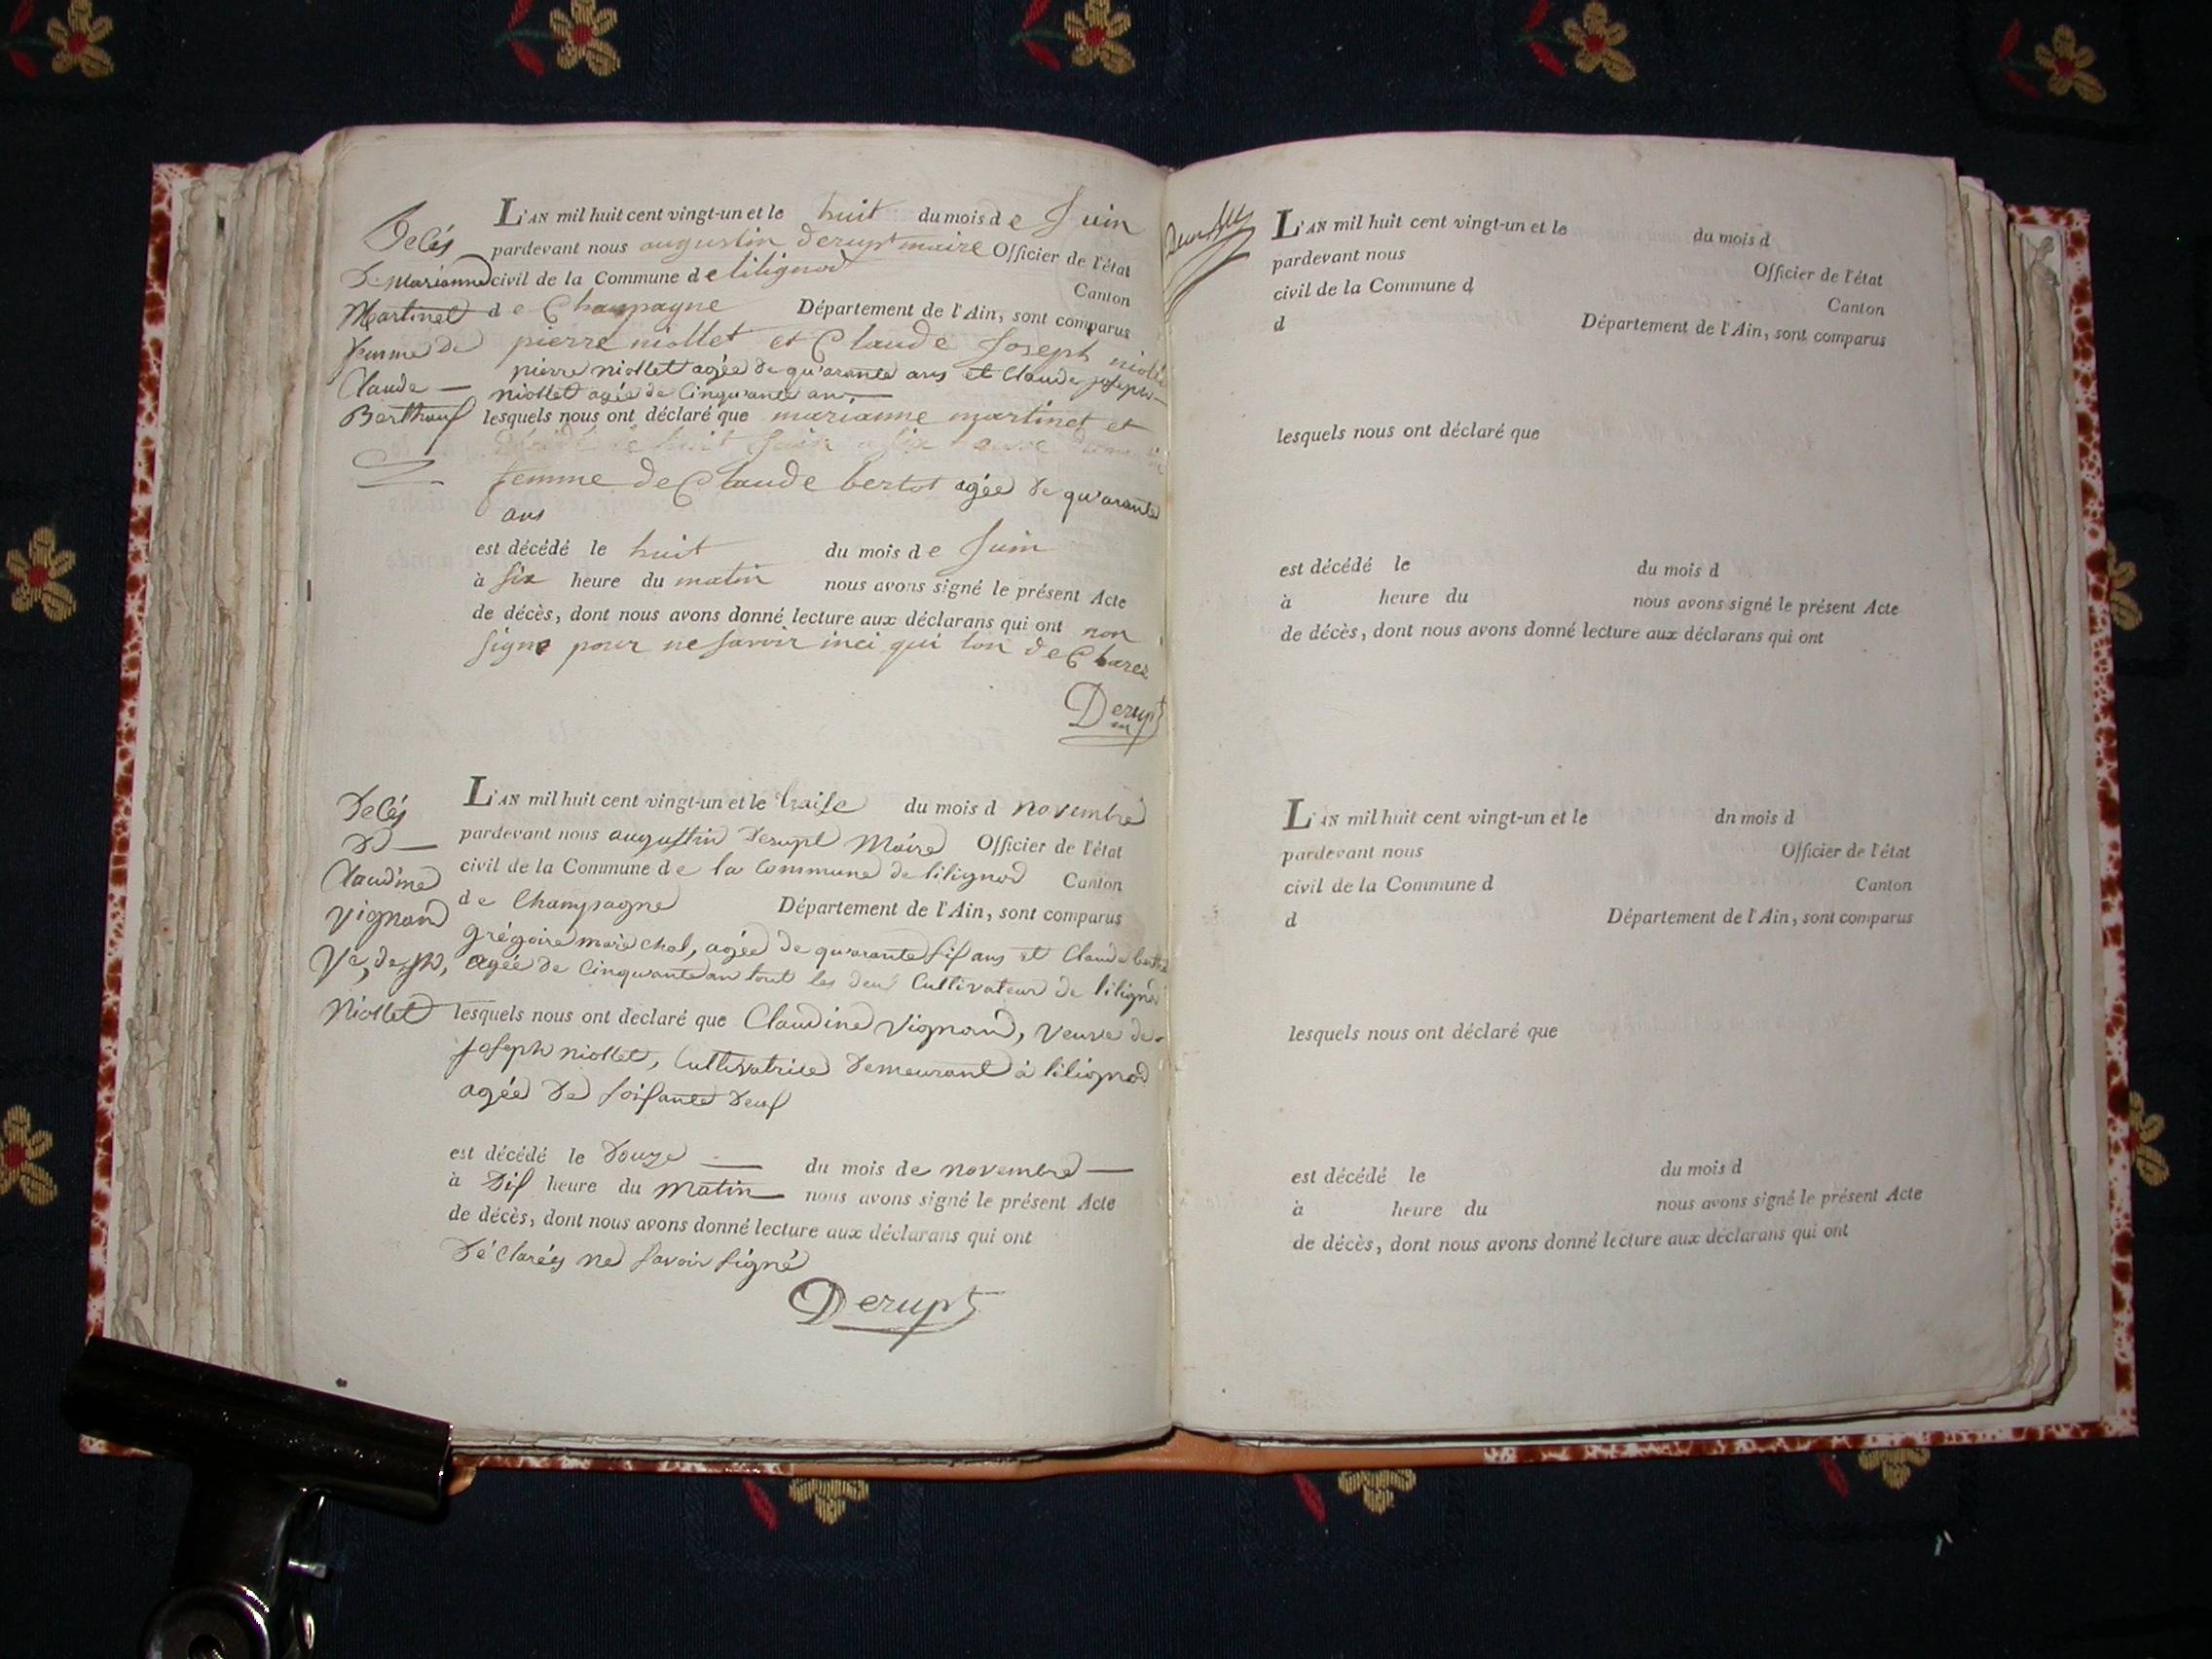 Decés
De marianne
Martinet
femme de
Claude —
Berthouf
L'AN mil huit cent vingt-un et le huit du mois de Juin
pardevant nous augustin derupt maire Officier de l'état
civil de la Commune de lilignod Canton
de Champagne Département de l'Ain, sont comparus
pierre niollet et Claude Joseph niollet
pierre niollet agée de qu'arante ans et Claude joseph
niollet agée de Cinquante an
lesquels nous ont déclaré que marianne martinet et
décédé le huit Juin a six heure
femme de Claude bertot agée de qu'arante
ans
est décédé le huit du mois de Juin
à six heure du matin nous avons signé le présent Acte
de décès, dont nous avons donné lecture aux déclarans qui ont non
signe pour ne savoir inci qui lon de Chares
Derupt
Decés
De —
Claudine
Vignand
Ve, de jh,
Niollet
L'AN mil huit cent vingt-un et le traise du mois d novembre
pardevant nous augustin Derupt Maire Officier de l'état
civil de la Commune de la Commune de lilignod Canton
de Champagne Département de l'Ain, sont comparus
grégoire maréchal, agée de qu'arante sis ans et Claude
agée de Cinquante an tout les deus Cultivateur de lilignod
lesquels nous ont déclaré que Claudine Vignand, Veuve de
joseph niollet, Cultivatrice Demeurant à lilignod
agée de soisante deus
est décédé le Douze — du mois de novembre —
à Dis heure du Matin nous avons signé le présent Acte
de décès, dont nous avons donné lecture aux déclarans qui ont
Déclarés ne savoir signé
Derupt
L'AN mil huit cent vingt-un et le du mois d
pardevant nous Officier de l'état
civil de la Commune d Canton
d Département de l'Ain, sont comparus
lesquels nous ont déclaré que
est décédé le du mois d
à heure du nous avons signé le présent Acte
de décès, dont nous avons donné lecture aux déclarans qui ont
L'AN mil huit cent vingt-un et le dn mois d
pardevant nous Officier de l'état
civil de la Commune d Canton
d Département de l'Ain, sont comparus
lesquels nous ont déclaré que
est décédé le du mois d
à heure du nous avons signé le présent Acte
de décès, dont nous avons donné lecture aux déclarans qui ont